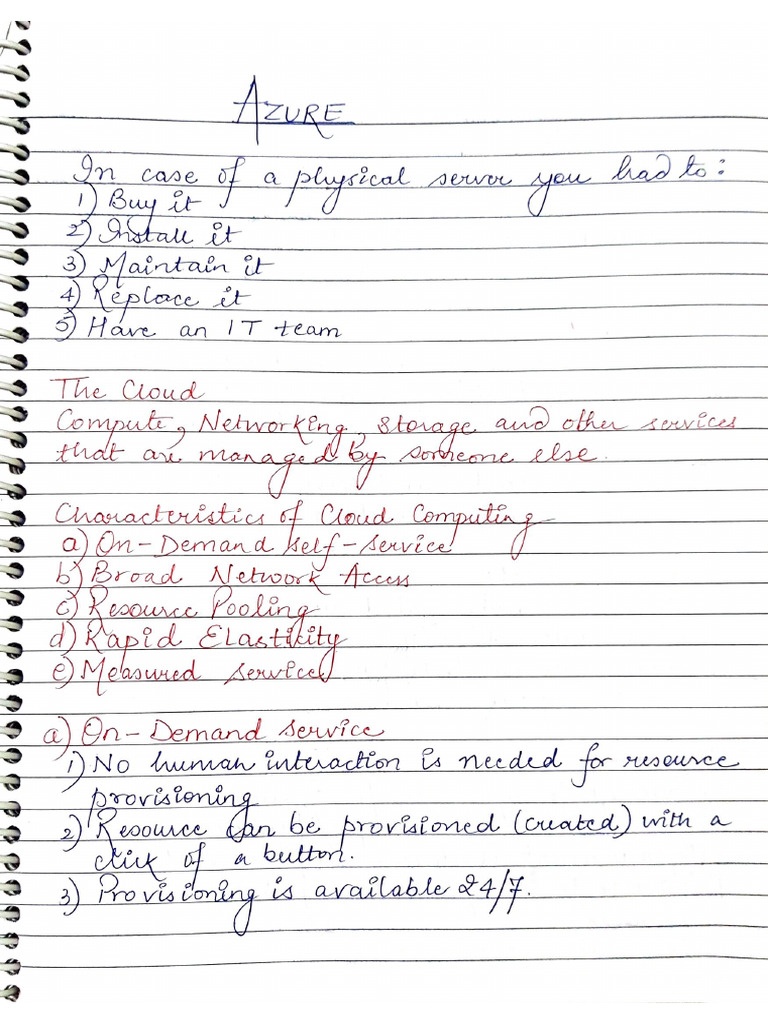 AZURE
In case of a physical server you had to:
1) Buy it
2) Install it
3) Maintain it
4) Replace it
5) Have an IT team
The Cloud
Compute, Networking, storage and other services
that are managed by someone else.
Characteristics of Cloud Computing
a) On-Demand self-service
b) Broad Network Access
c) Resource Pooling
d) Rapid Elasticity
e) Measured service
a) On-Demand service
1) No human interaction is needed for resource
provisioning
2) Resource can be provisioned (created) with a
click of a button.
3) Provisioning is available 24/7.